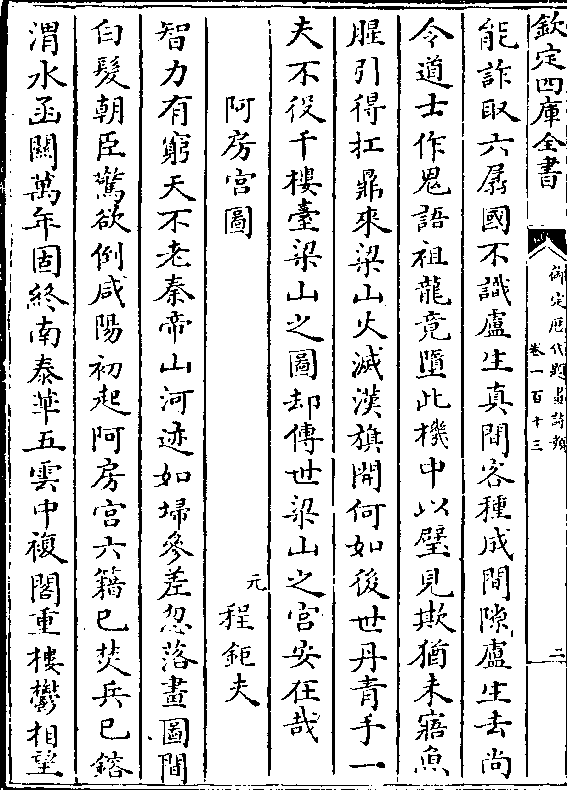 欽定四庫全書
御定歷代題畫詩類
卷一百十三
二
能詐取六孱國不識盧生真間客種成間隙盧生去尚
令道士作鬼語祖龍竟墮此機中以璧見欺猶未寤魚
腥引得扛鼎來梁山火滅漢旗開何如後世丹青手一
夫不役千樓臺梁山之圖却傳世梁山之宫安在哉
阿房宫圖
元
程鉅夫
智力有窮天不老秦帝山河迹如埽參差忽落畫圖間
白髮朝臣驚欲倒咸陽初起阿房宫六籍已焚兵已鎔
渭水函關萬年固終南泰華五雲中複閣重樓鬱相望